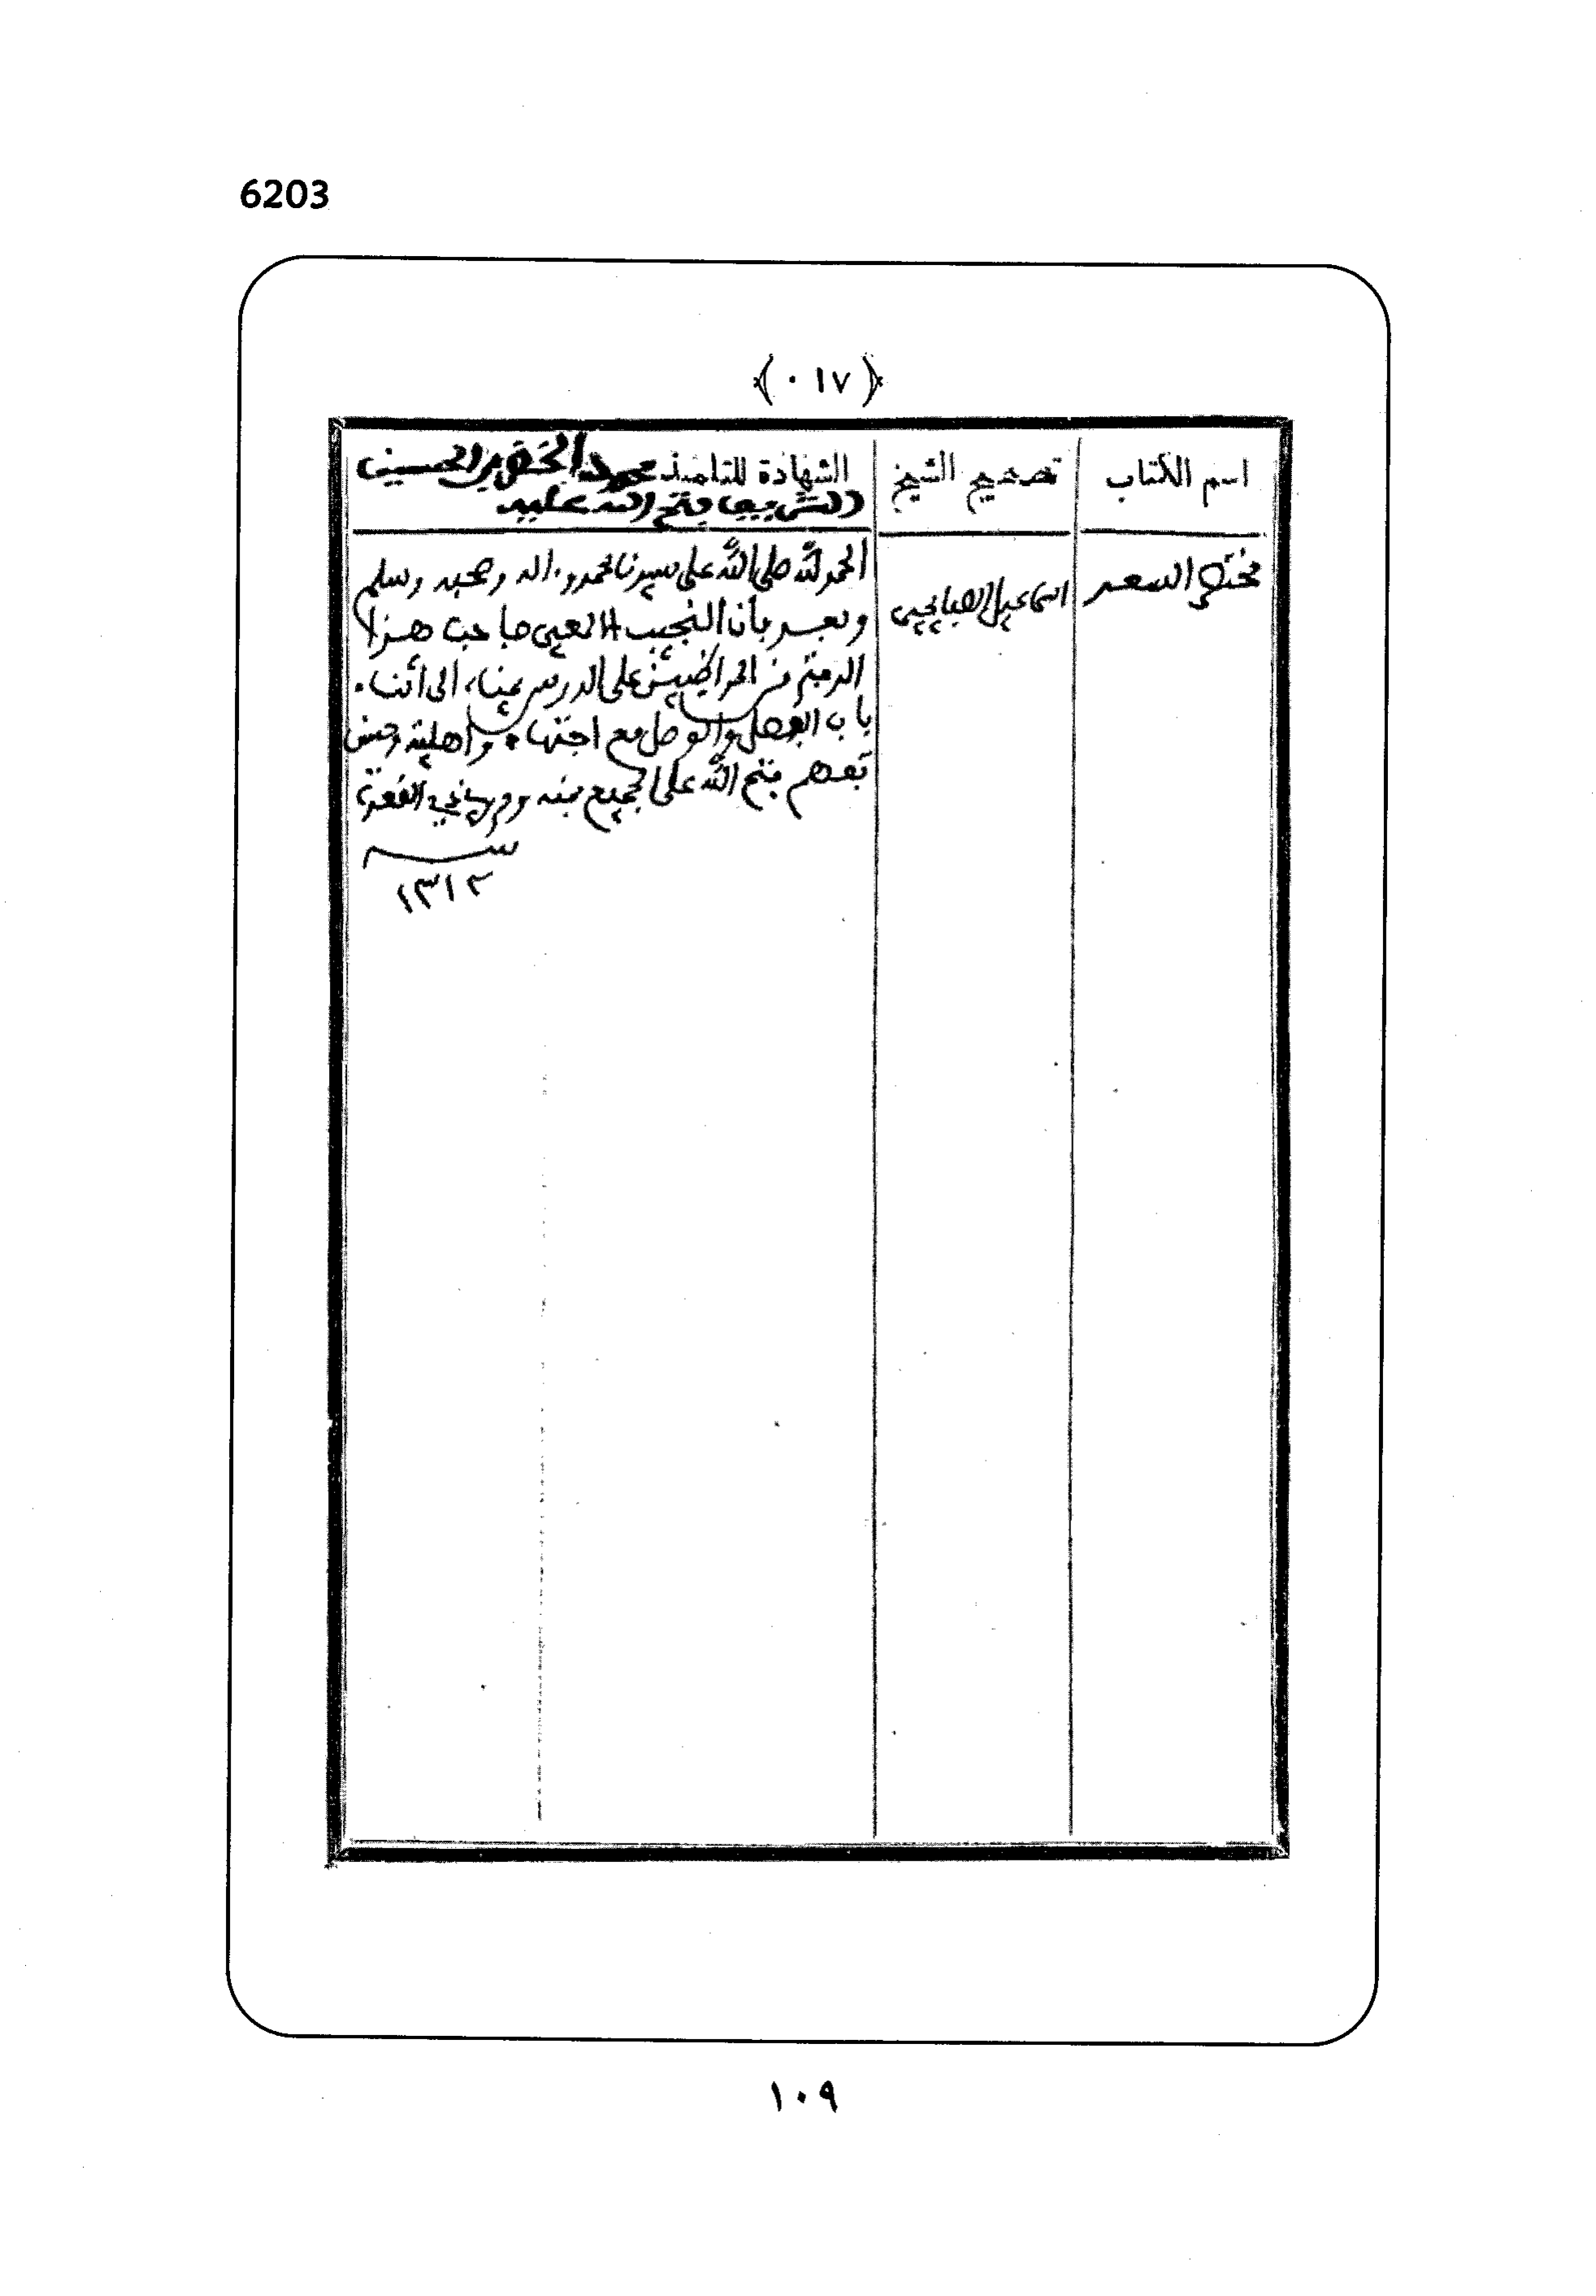 6203
﴿٠١٧﴾
اسم الكتاب
تصحيح الشيخ
الشهادة للتلميذ محمد الخضر بن الحسين
الشريف فتح الله عليه
مختصر السعد
اسماعيل الصفايحي
الحمد لله صلى الله على سيدنا محمد وءاله وصحبه وسلم
وبعد بأن النجيب صاحب هذا
الدفتر من على الدرس الى أثناء
باب الفصل والوصل مع اجتهاد وأهلية وحسن
تفهم فتح الله على الجميع بمنه وفي القعدة
سنة
١٣١٢
١٠٩